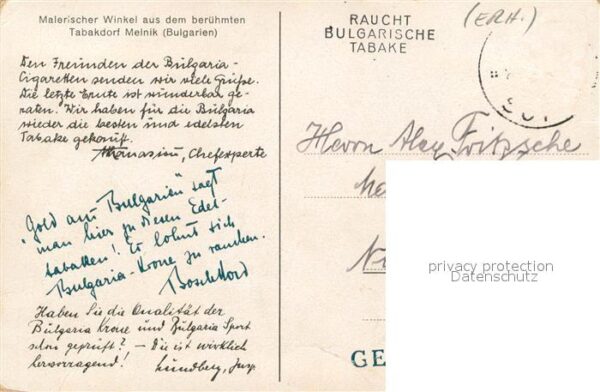 Malerischer Winkel aus dem berühmten
Tabakdorf Melnik (Bulgarien)
Den Freunden der Bulgaria-
Cigaretten senden wir viele Grüße.
Die letzte Ernte ist wunderbar ge-
raten. Wir haben für die Bulgaria
wieder die besten und edelsten
Tabake gekauft.
Athanasiu, Chefexperte
"Gold aus Bulgarien" sagt
man hier zu diesen Edel-
tabaken! Es lohnt sich
Bulgaria-Krone zu rauchen.
Haben Sie die Qualität der
Bulgaria Krone und Bulgaria Sport
schon geprüft? – Die ist wirklich
hervorragend! Lundberg, Insp.
RAUCHT
BULGARISCHE
TABAKE
(ERH.)
Herrn Alex Fritzsche
privacy protection
Datenschutz
GE